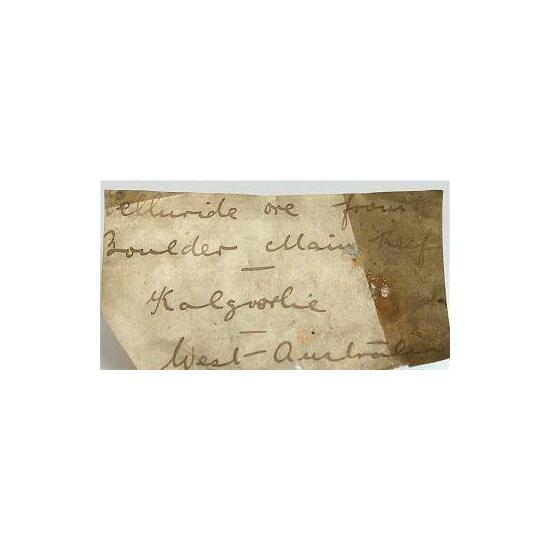 Telluride ore from
Boulder Main Reef
—
Kalgoorlie
—
West-Australia